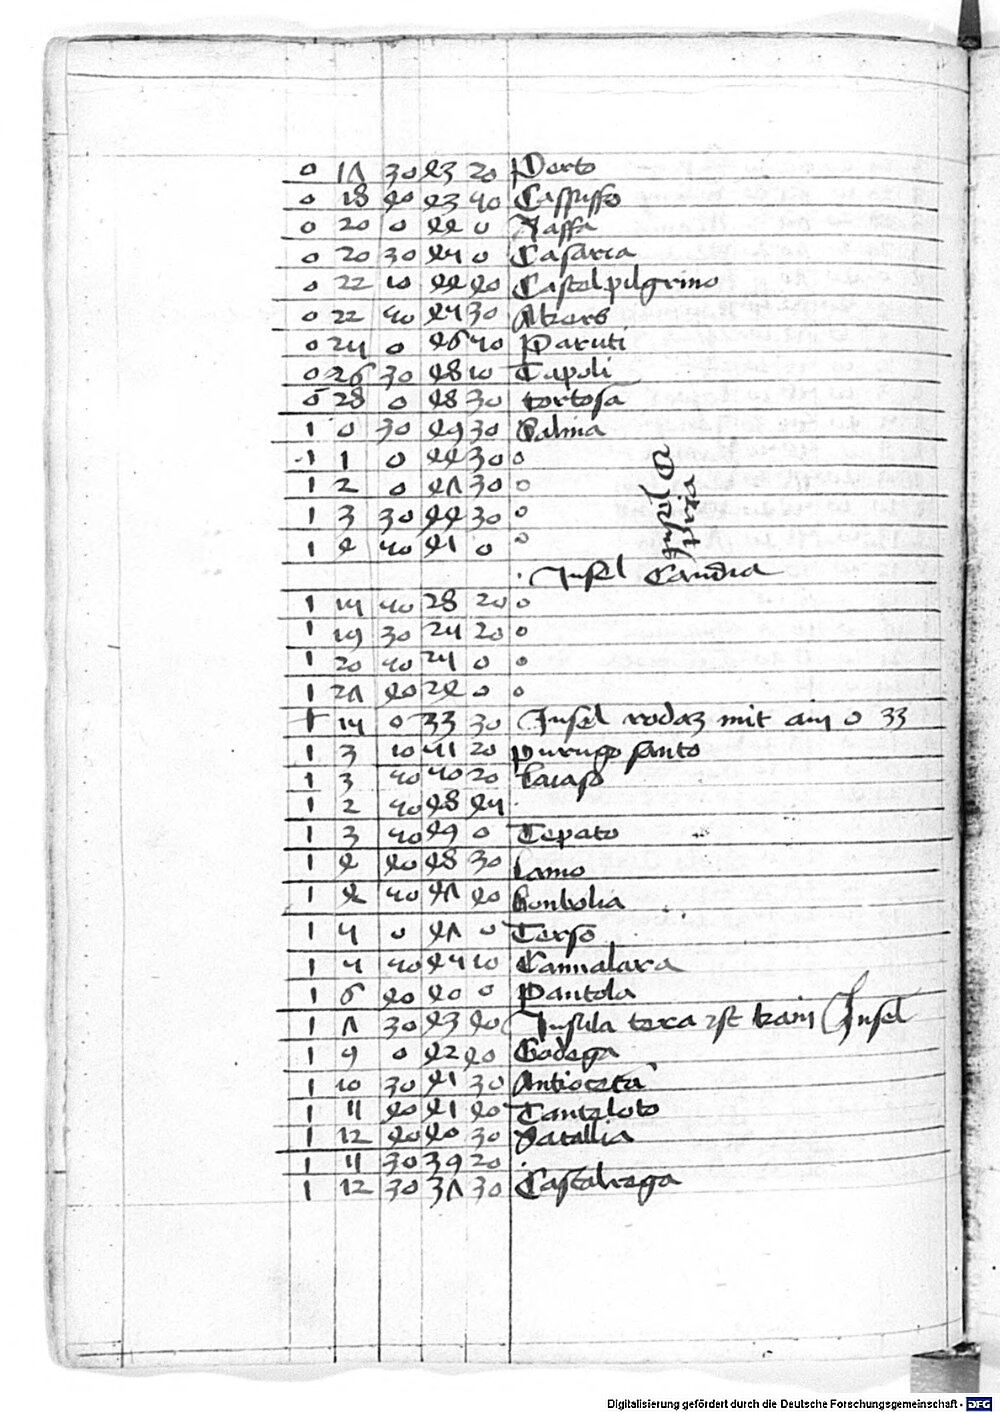 0 17 30 43 20 Porto
0 18 40 43 50 Cassusso
0 20 0 44 0 Jaffa
0 20 30 45 0 Casaria
0 22 10 44 40 Castelpilgrino
0 22 50 45 30 Akers
0 25 0 46 50 Paruti
0 26 30 48 10 Tapoli
0 28 0 48 30 tortosa
1 0 30 49 30 Palmia
1 1 0 44 30 0
1 2 0 47 30 0
1 3 30 44 30 0
1 4 50 41 0 0
Insel
Insel Candia
1 15 50 28 20 0
1 19 30 25 20 0
1 20 50 25 0 0
1 27 40 24 0 0
1 15 0 33 30 Insel rodaz mit ain 0 33
1 3 10 51 20 purugo santo
1 3 50 50 20 Caiaso
1 2 50 48 45 .
1 3 50 49 0 Tepato
1 4 40 48 30 Lamo
1 4 50 47 40 Conbolia
1 5 0 47 0 Terso
1 5 50 45 10 Cannalara
1 6 40 40 0 Pantola
1 7 30 43 40 Insula terca ist kain Insel
1 9 0 42 40 Godega
1 10 30 41 30 Antioceta
1 11 40 41 40 Cantaloto
1 12 40 40 30 Satallia
1 11 30 39 20 .
1 12 30 37 30 Castalraga
Digitalisierung gefördert durch die Deutsche Forschungsgemeinschaft - DFG